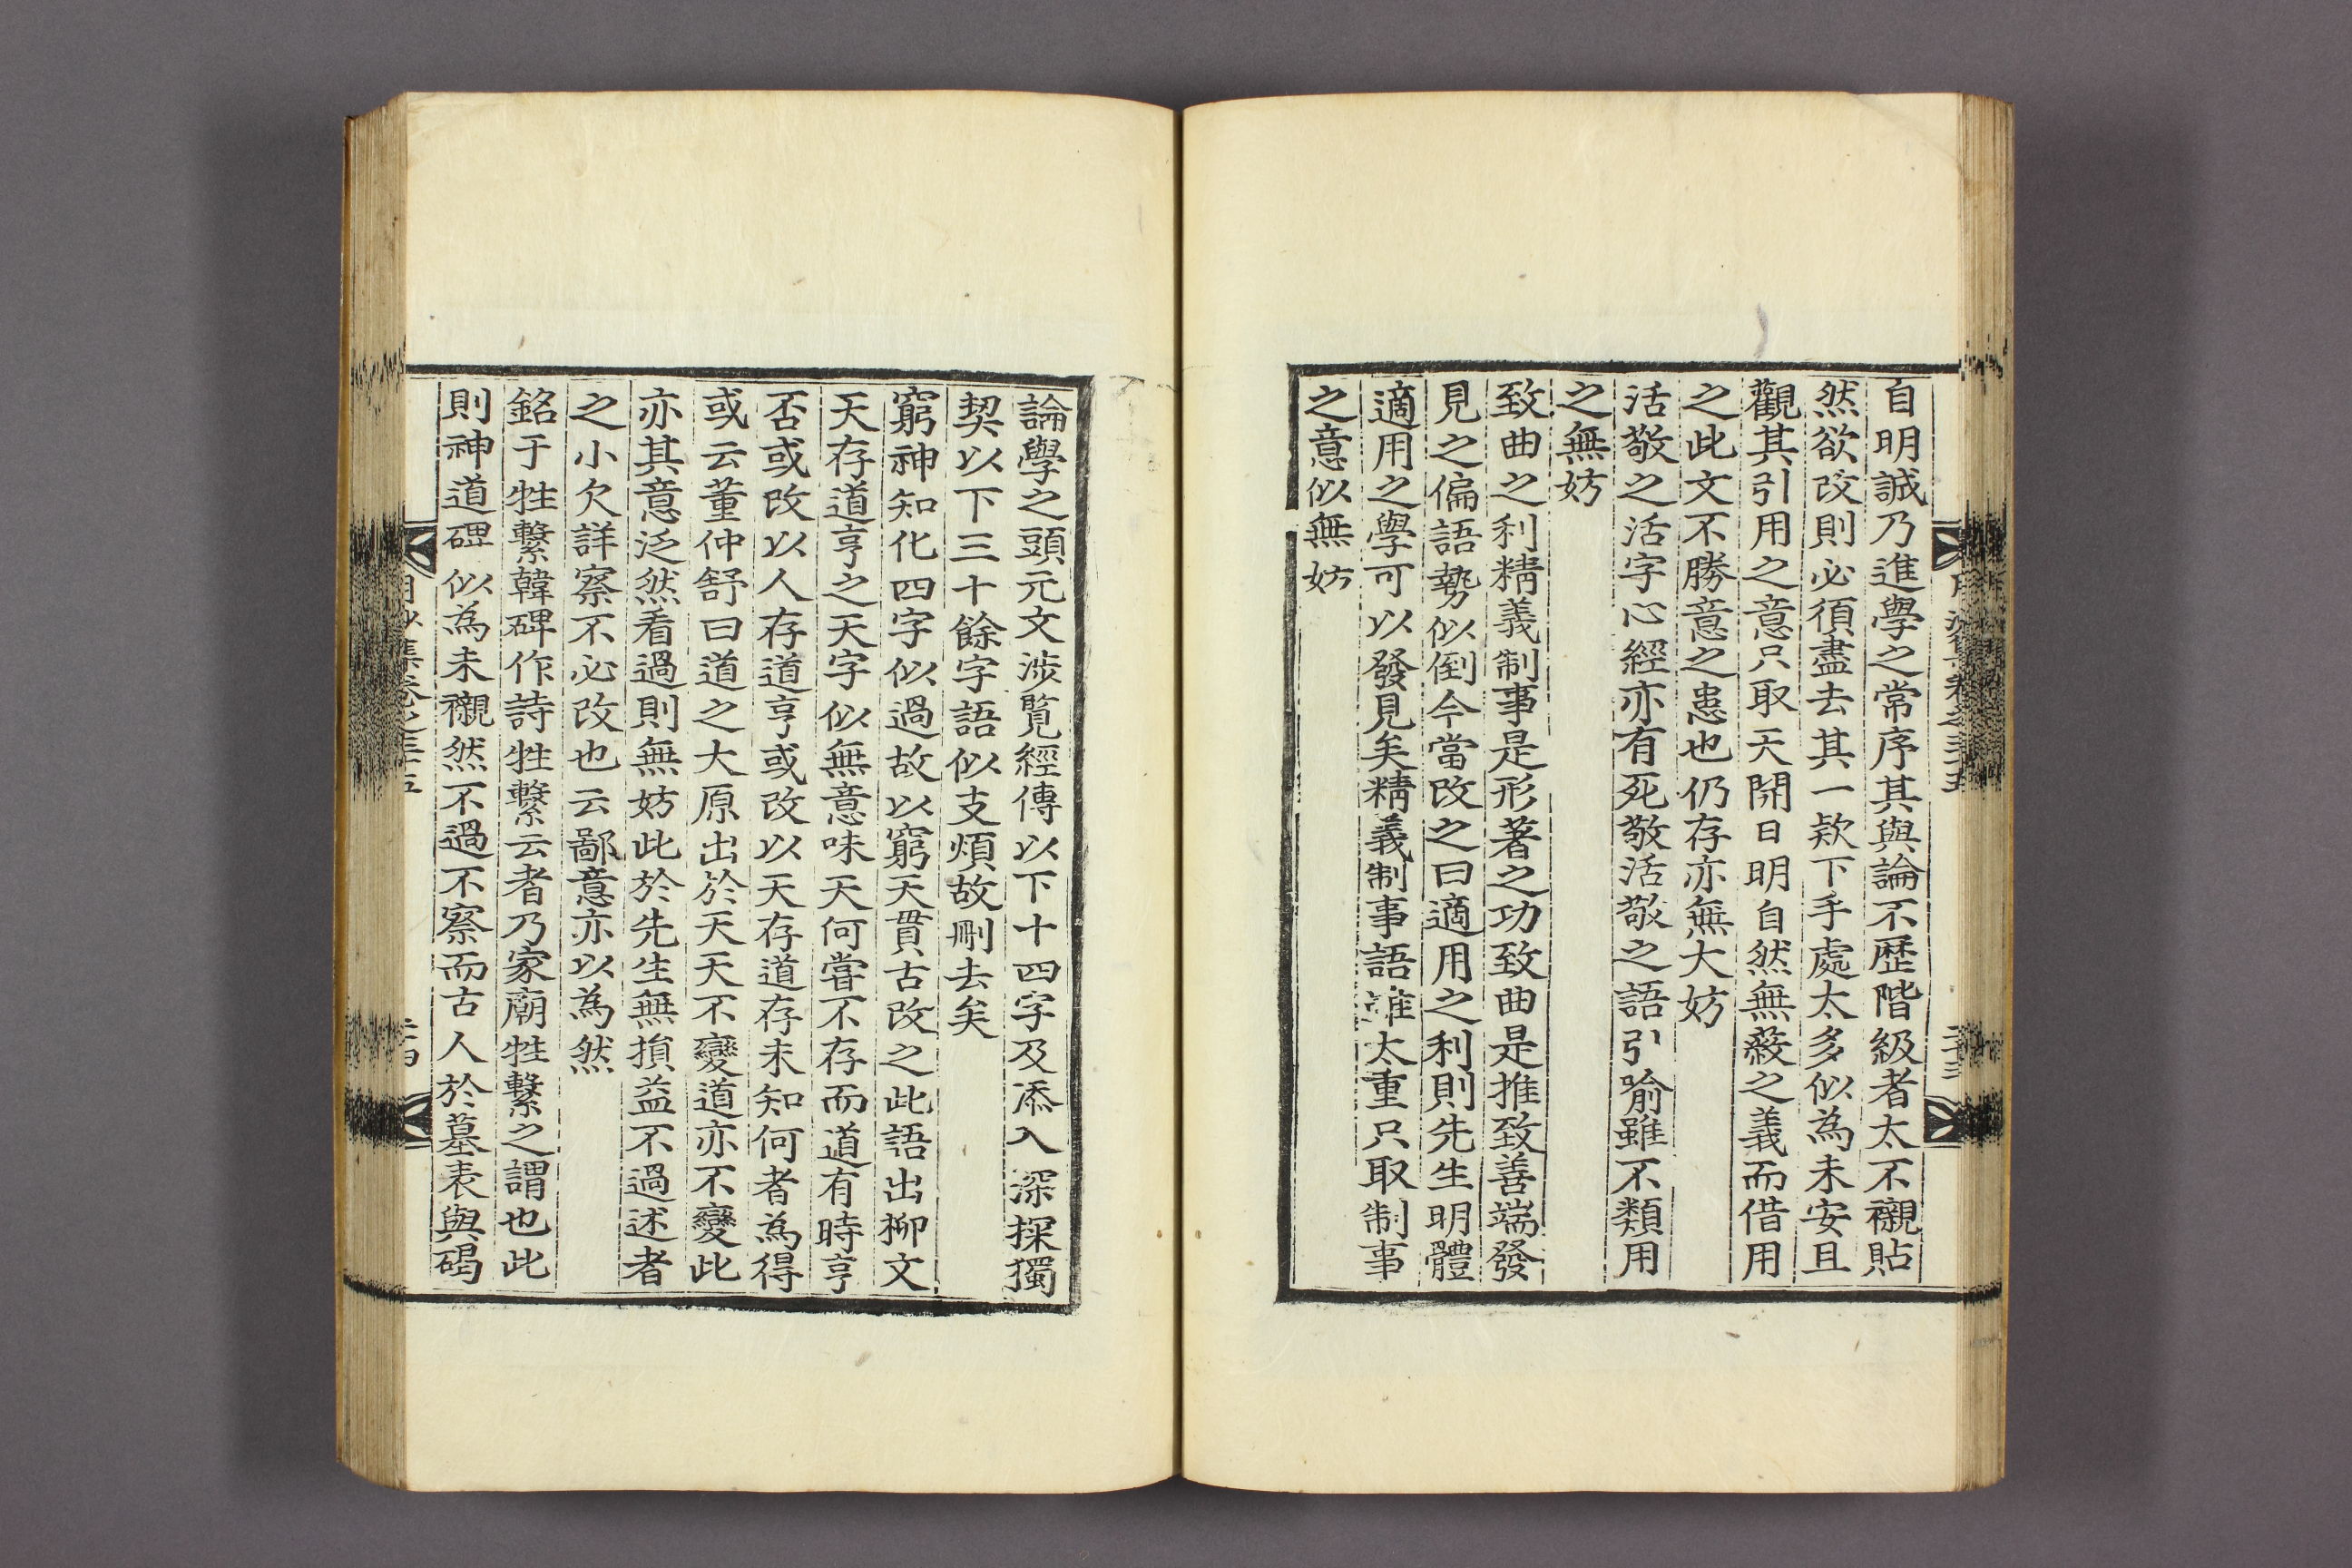 自明誠乃進學之常序其與論不歷階級者太不襯貼
然欲改則必須盡去其一欵下手處太多似為未安且
觀其引用之意只取天開日明自然無蔽之義而借用
之此文不勝意之患也仍存亦無大妨
活敬之活字心經亦有死敬活敬之語引喻雖不類用
之無妨
致曲之利精義制事是形著之功致曲是推致善端發
見之偏語勢似倒今當改之曰適用之利則先生明體
適用之學可以發見矣精義制事語雖太重只取制事
之意似無妨
論學之頭元文涉覽經傳以下十四字及添入深探獨
契以下三十餘字語似支煩故刪去矣
窮神知化四字似過故以窮天貫古改之此語出柳文
天存道亨之天字似無意味天何嘗不存而道有時亨
否或改以人存道亨或改以天存道存未知何者為得
或云董仲舒曰道之大原出於天天不變道亦不變此
亦其意泛然看過則無妨此於先生無損益不過述者
之小欠詳察不必改也云鄙意亦以為然
銘于牲繫韓碑作詩牲繫云者乃家廟牲繫之謂也此
則神道碑似為未襯然不過不察而古人於墓表與碣